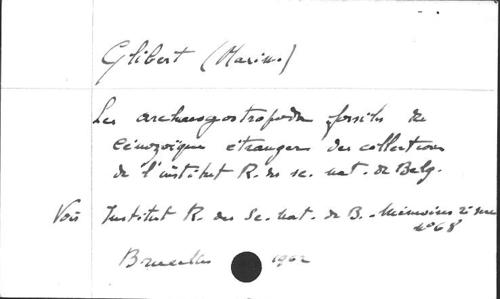 Glibert (Maxim.)
Les archaeogastropodes fossiles du
Cénozoïque étrangers des collections
de l'institut R. des sc. nat. de Belg.
Voir Institut R. des Sc. nat. de B. Mémoires 2e série
n° 68
Bruxelles 1962